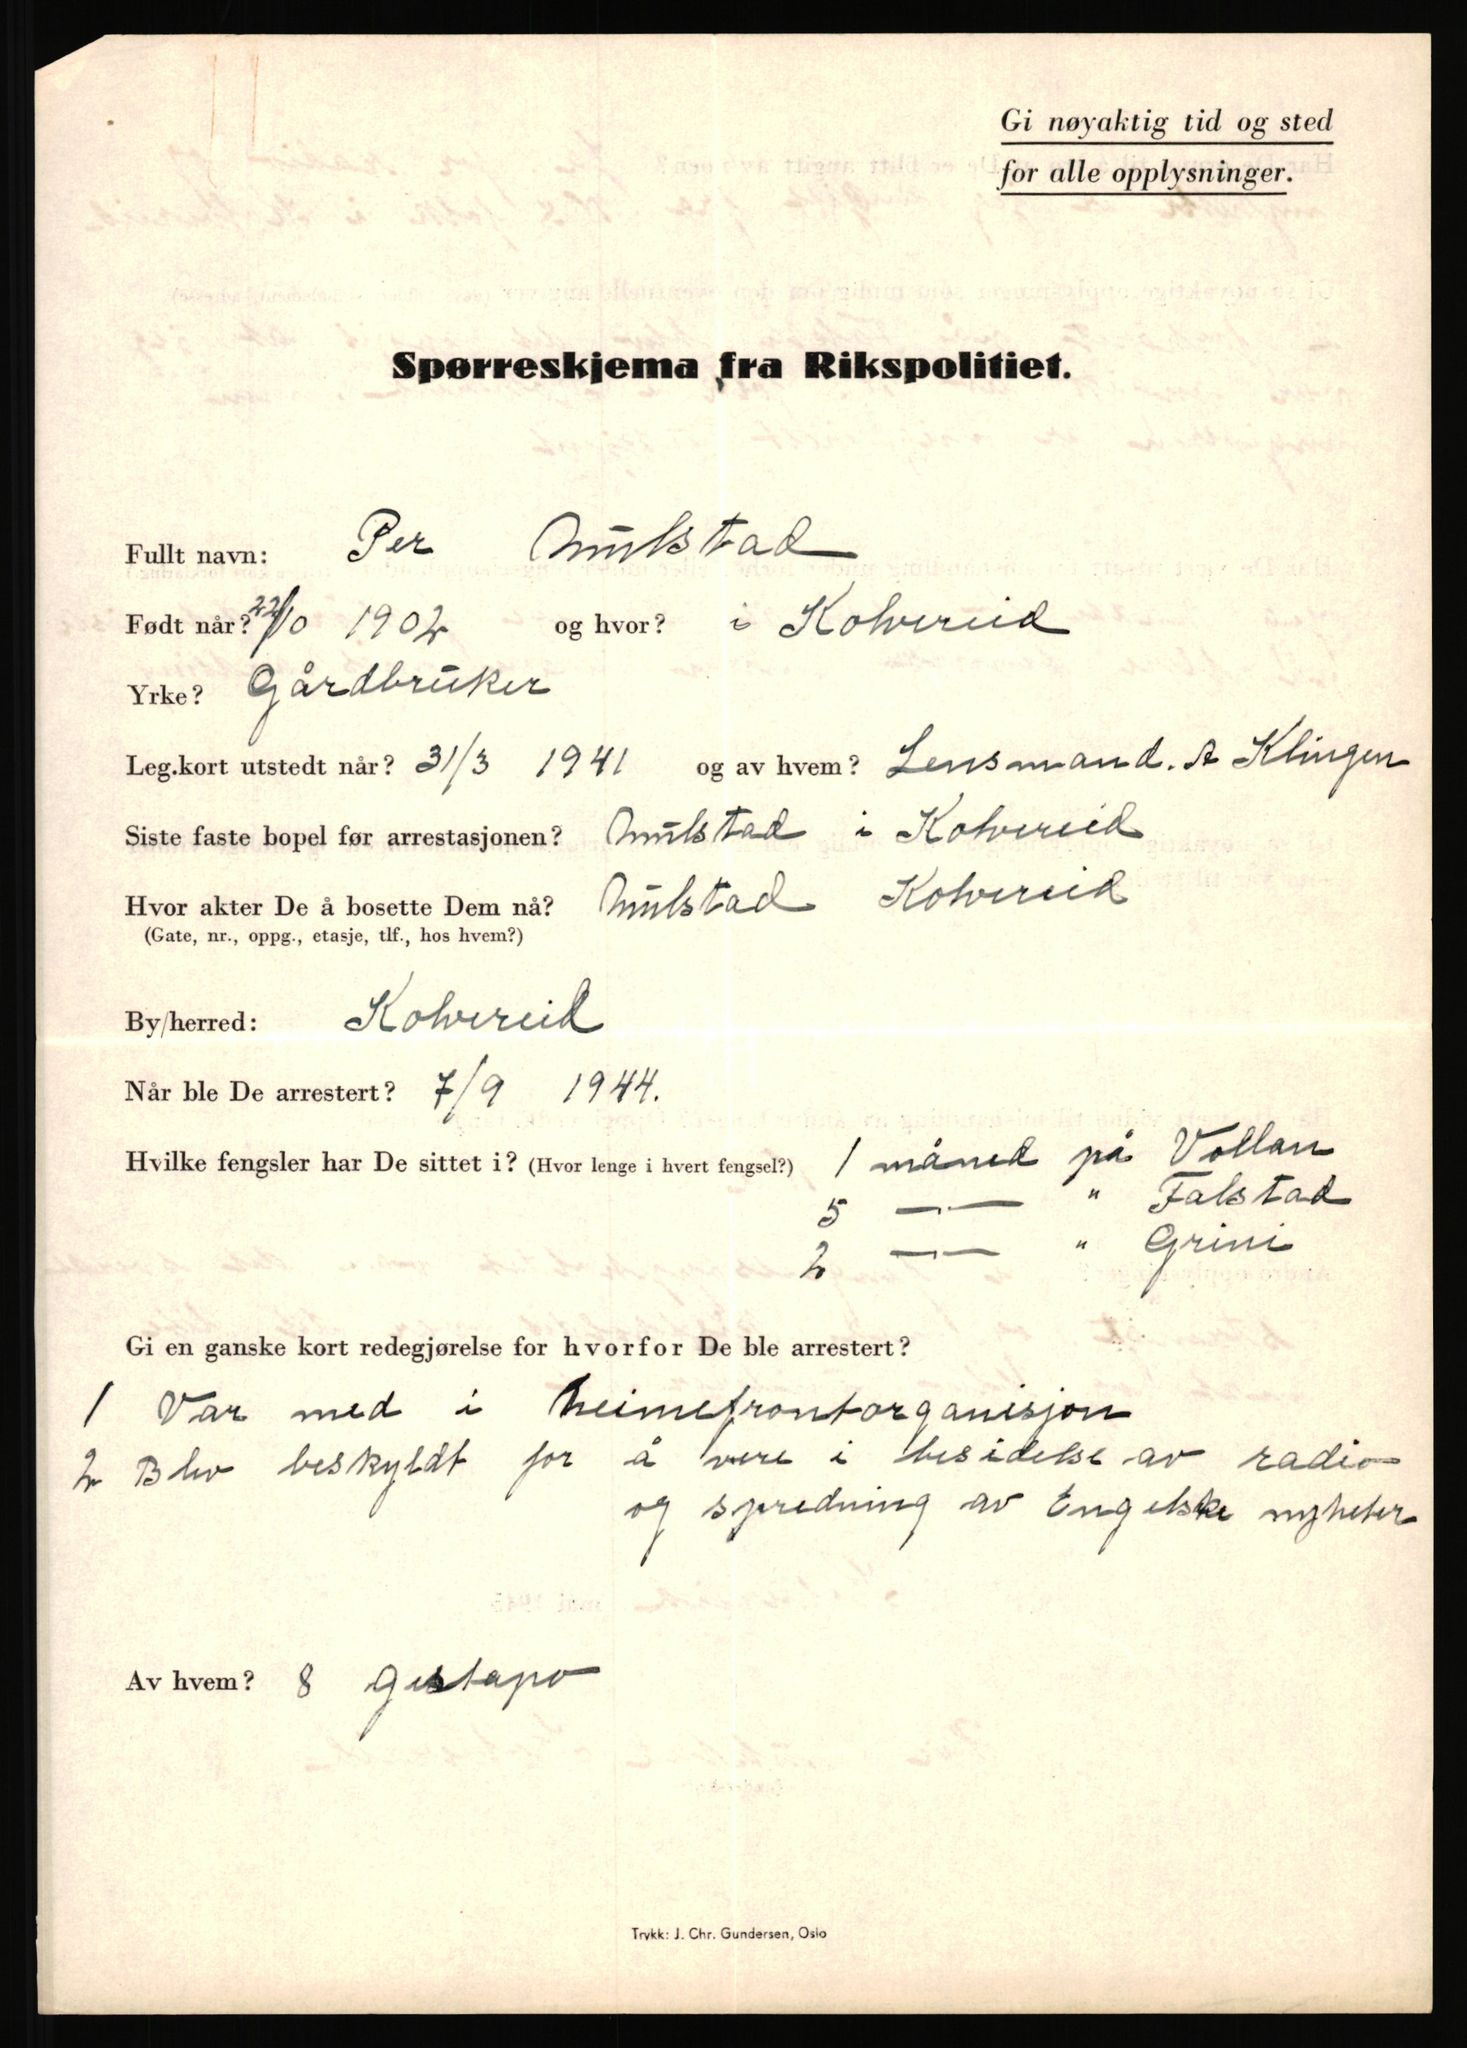 Gi nøyaktig tid og sted
for alle opplysninger.
Spørreskjema fra Rikspolitiet.
Fullt navn: Per Mulstad
Født når? 22/10 1902 og hvor? i Kolvereid
Yrke? Gårdbruker
Leg.kort utstedt når? 31/3 1941 og av hvem? Lensmand. A Klingen
Siste faste bopel før arrestasjonen? Mulstad i Kolvereid
Hvor akter De å bosette Dem nå? Mulstad Kolvereid
(Gate, nr., oppg., etasje, tlf., hos hvem?)
By/herred: Kolvereid
Når ble De arrestert? 7/9 1944.
Hvilke fengsler har De sittet i? (Hvor lenge i hvert fengsel?) 1 måned på Vollan
5 —„— " Falstad
2 —„— " Grini
Gi en ganske kort redegjørelse for hvorfor De ble arrestert?
1 Var med i heimefrontorganisjon
2 Blev beskyldt for å vere i besidelse av radio
og spredning av Engelske nyheter
Av hvem? 8 gestapo
Trykk: J. Chr. Gundersen, Oslo